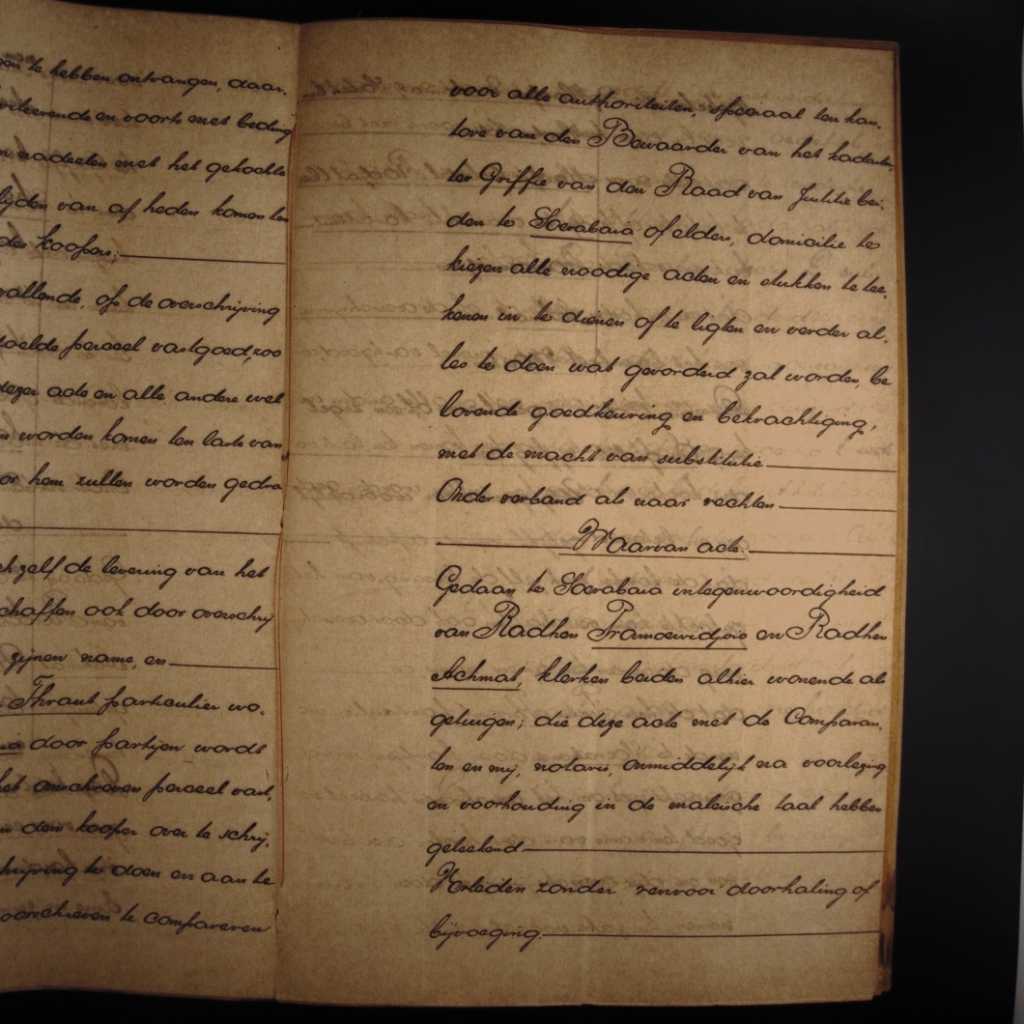 te hebben ontvangen, daar,
en voorts met beding
nadeelen met het gekochte
lijden van af heden komen ten
den kooper;
vallende, of de overschrijving
perceel vastgoed, zoo
dezer acte en alle andere wel
worden komen ten laste van
hem zullen worden gedra
zelf de levering van het
schaffen ook door overschrij
zijnen name, en
Thraut particulier wo,
door partijen wordt
het omschreven perceel vast,
den kooper over te schrij,
te doen en aan te
te compareren
voor alle authoriteiten, speciaal ten kan,
tore van den Bewaarder van het kadaster
ter Griffie van den Raad van Justitie bei,
den te Soerabaia of elders, domicilie te
kiezen alle noodige acten en stukken te tee,
kenen in te dienen of te ligten en verder al,
les te doen wat gevorderd zal worden, be
lovende goedkeuring en bekrachtiging,
met de macht van substitutie
Onder verband als naar rechten
Waarvan acte.
Gedaan te Soerabaia in tegenwoordigheid
van Radhen Pramoewidjoio en Radhen
Achmat, klerken beiden alhier wonende als
getuigen; die deze acte met de Comparan,
ten en mij, notaris, onmiddelijk na voorlezing
en voorhouding in de maleische taal hebben
geteekend
Verleden zonder renvooi doorhaling of
bijvoeging.